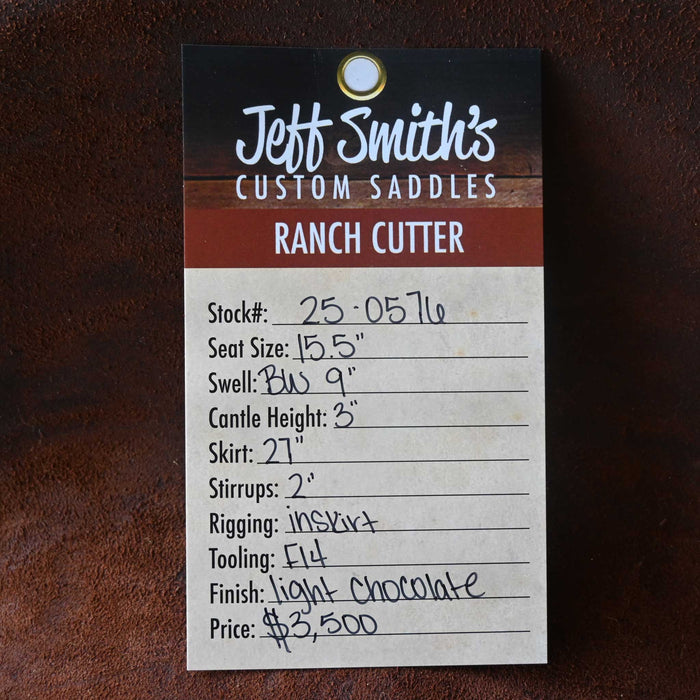 Jeff Smith's
CUSTOM SADDLES
RANCH CUTTER
Stock#: 25-0576
Seat Size: 15.5"
Swell: BW 9"
Cantle Height: 3"
Skirt: 27"
Stirrups: 2"
Rigging: inskirt
Tooling: F14
Finish: light chocolate
Price: $3,500